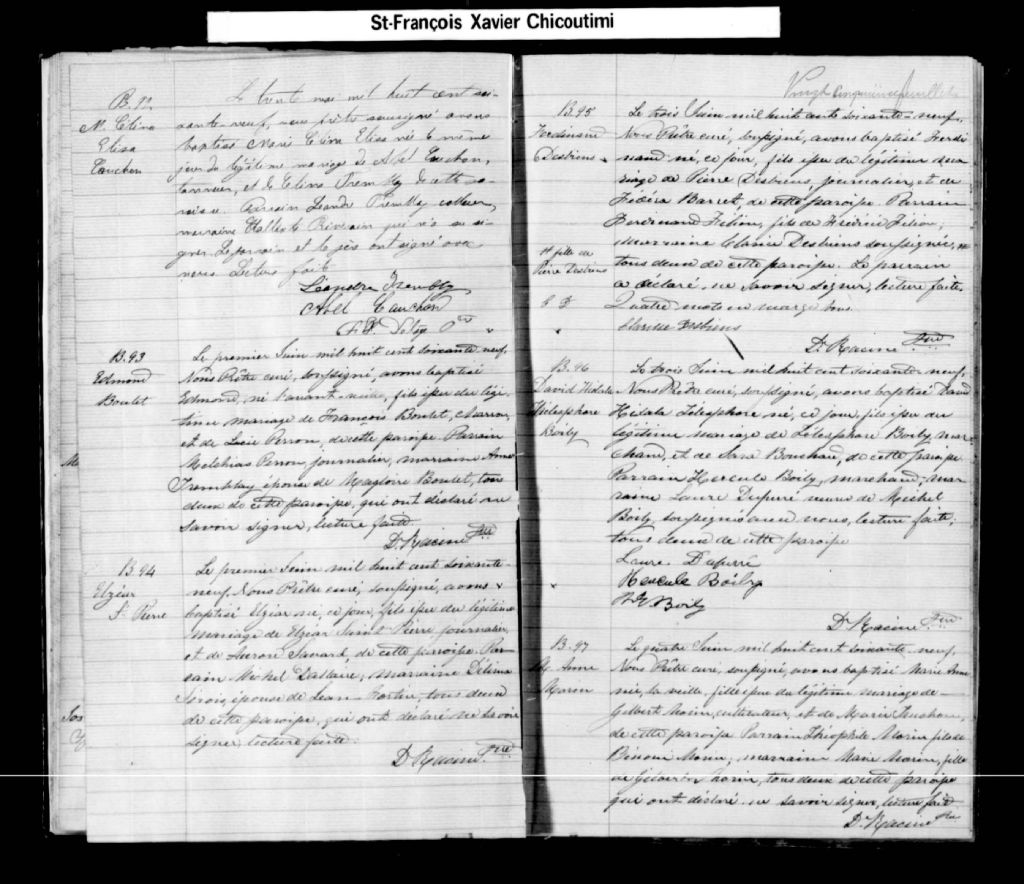 St-François Xavier Chicoutimi
B. 92
M. Elina
Elisa
Cauchon
Le trente mai mil huit cent soi-
xante-neuf, nous prêtre soussigné avons
baptisé Marie Elina Elisa née le même
jour du légitime mariage de Abel Cauchon,
tanneur, et de Elina Tremblay de cette pa-
roisse. Parrain Léandre Tremblay
marraine qui n'a su si-
gner. Le parrain et le père ont signé avec
nous. Lecture faite
Léandre Tremblay
Abel Cauchon
Ptre
B. 93
Edmond
Boulet
Le premier Juin mil huit cent soixante neuf,
Nous Prêtre curé, soussigné, avons baptisé
Edmond, né l'avant-veille, fils issu du légi-
time mariage de François Boulet, charron,
et de Lucie Perron, de cette paroisse. Parrain
Melchias Perron, journalier, marraine Anne
Tremblay épouse de Magloire Boulet, tous
deux de cette paroisse, qui ont déclaré ne
savoir signer, lecture faite
D. Racine Ptre
B. 94
Elzéar
St Pierre
Le premier Juin mil huit cent soixante-
neuf, Nous Prêtre curé, soussigné, avons
baptisé Elzéar né, ce jour, fils issu du légitime
mariage de Elzéar Saint Pierre journalier
et de Aurore Savard, de cette paroisse. Par-
rain Michel Dallaire, marraine Délima
Sirois, épouse de Jean Fortin, tous deux
de cette paroisse, qui ont déclaré ne savoir
signer, lecture faite.
D. Racine Ptre
Vingt cinquième feuillet
B. 95
Ferdinand
Desbiens
Le trois Juin mil huit cent soixante-neuf,
Nous Prêtre curé, soussigné, avons baptisé Ferdi-
nand né, ce jour, fils issu du légitime ma-
riage de Pierre Desbiens, journalier, et de
Barret, de cette paroisse. Parrain
Ferdinand Filion, fils de Filion,
Marraine Clarisse Desbiens soussignée,
tous deux de cette paroisse. Le parrain
a déclaré ne savoir signer, lecture faite.
Quatre mots en marge bons.
fille de
Pierre Desbiens
Clarisse Desbiens
D. Racine Ptre
B. 96
David
Télesphore
Boily
Le trois Juin mil huit cent soixante-neuf,
Nous Prêtre curé, soussigné, avons baptisé David
Télesphore né, ce jour, fils issu du
légitime mariage de Télesphore Boily, mar-
chand, et de Bouchard, de cette paroisse
Parrain Hercule Boily, marchand, mar-
raine Laure Dufurré veuve de Michel
Boily, soussignés avec nous, lecture faite;
tous deux de cette paroisse
Laure Dufurré
Hercule Boily
Boily
D. Racine Ptre
B. 97
M. Anne
Morin
Le quatre Juin mil huit cent soixante-neuf,
Nous Prêtre curé, soussigné, avons baptisé Marie Anne
née, la veille, fille issue du légitime mariage de
Gilbert Morin, cultivateur, et de Marie
de cette paroisse Parrain Théophile Morin fils de
Morin, marraine Marie Morin, fille
de Gilbert Morin, tous deux de cette paroisse
qui ont déclaré ne savoir signer, lecture faite
D. Racine Ptre